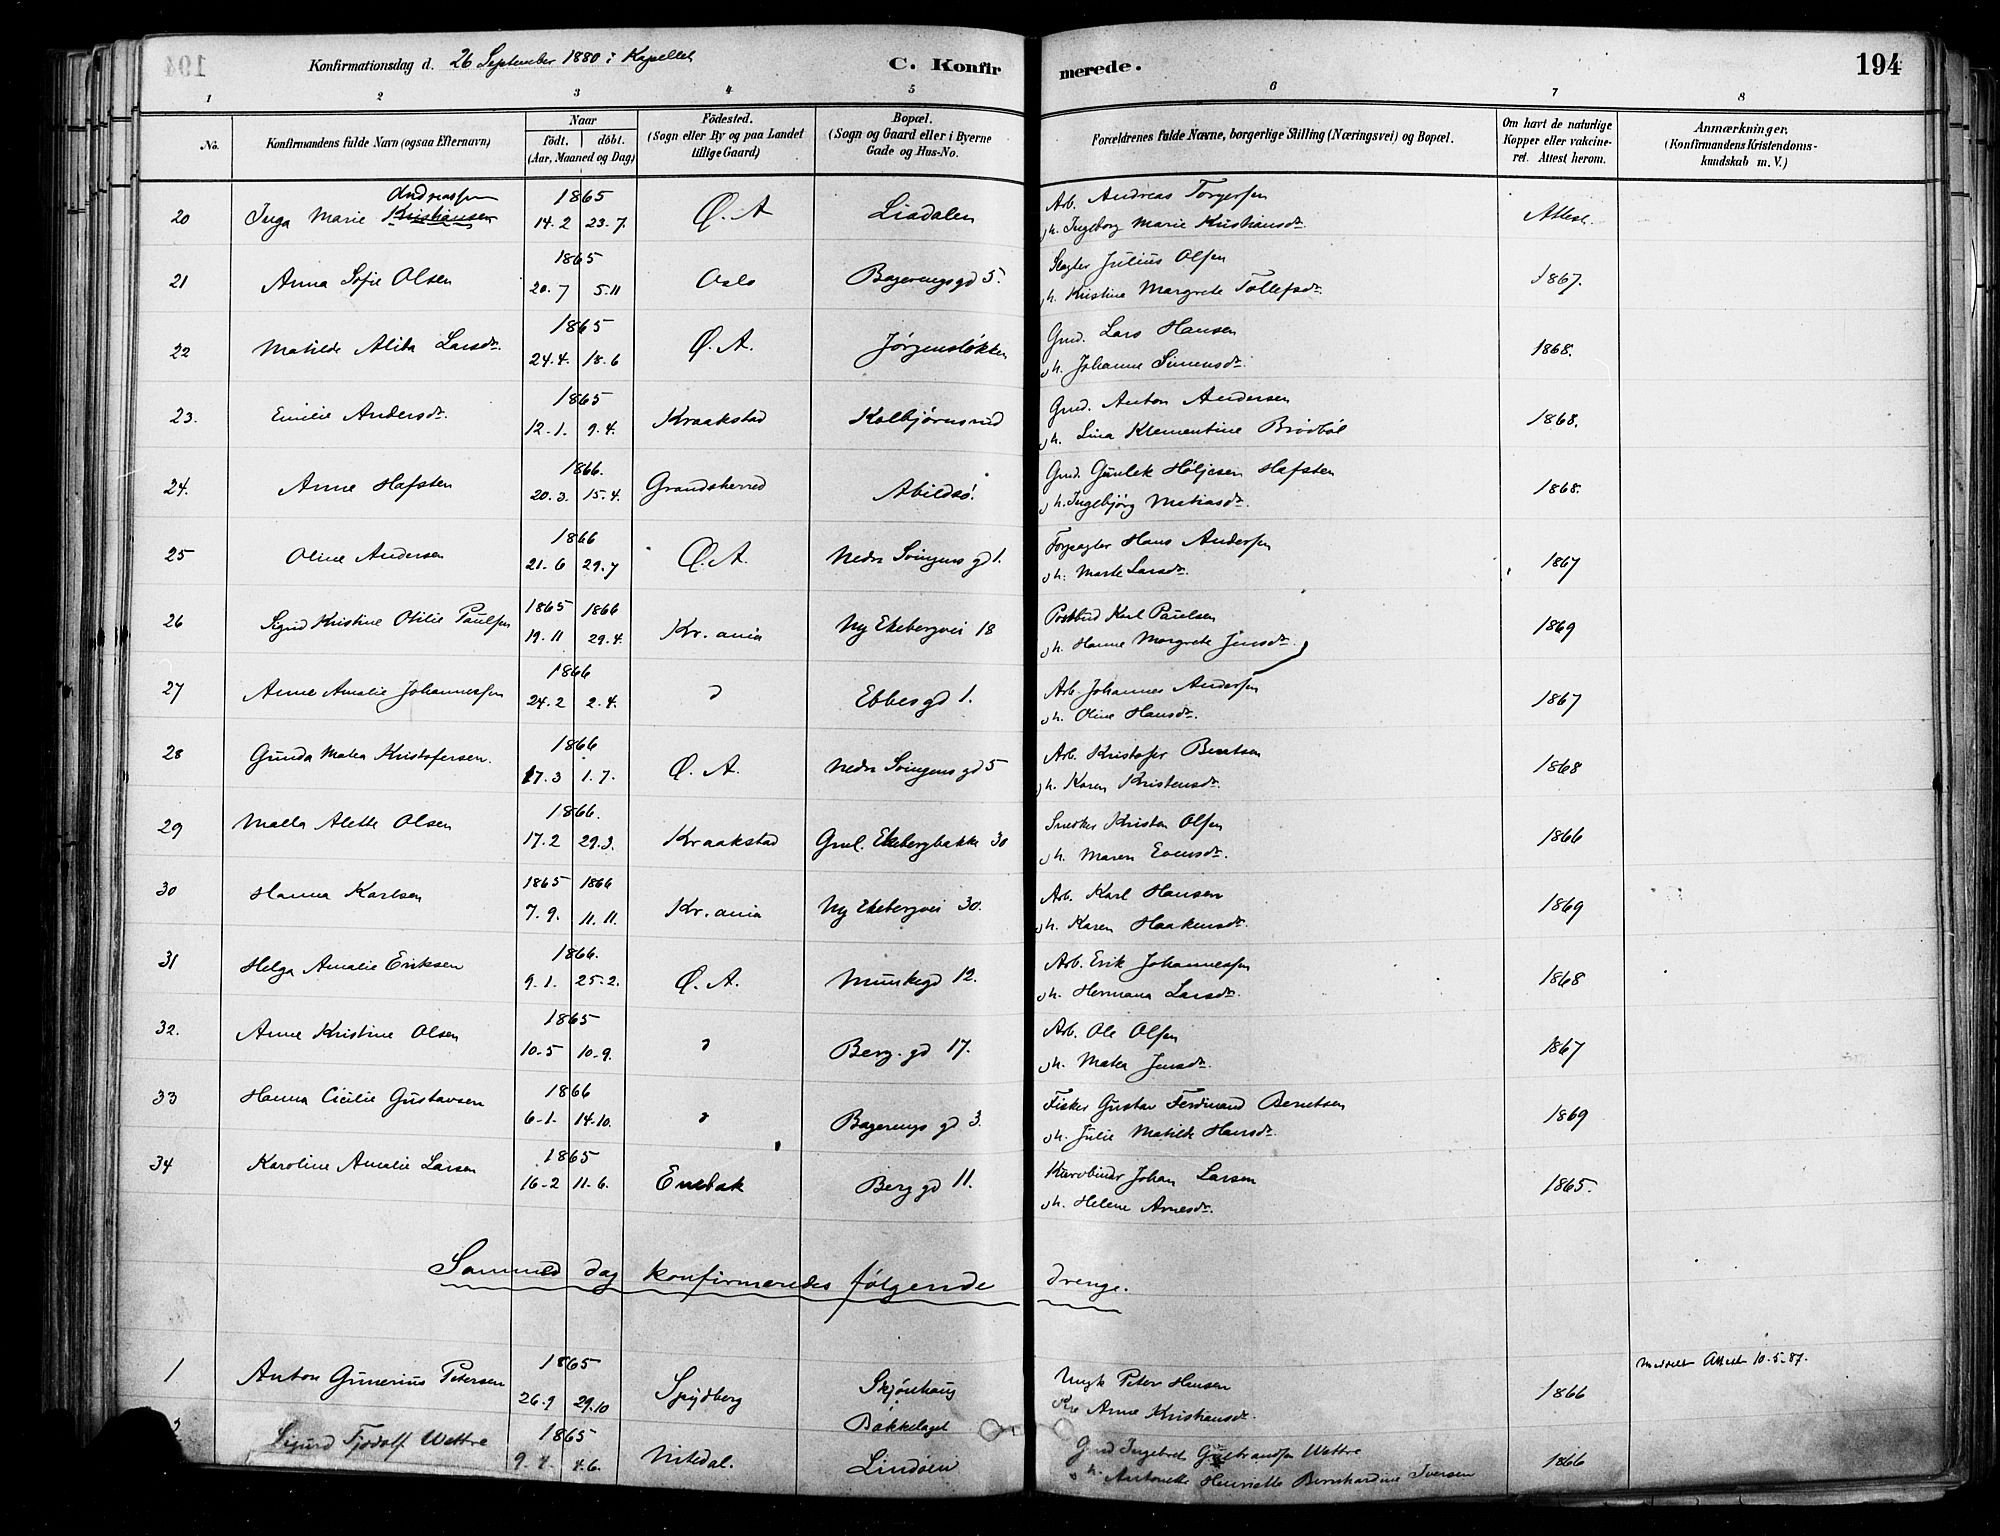 Konfirmationsdag d. 26 September 1880 i Kapellet C. Konfirmerede. 194
1 2 3 4 5 6 7 8
No. Konfirmandens fulde Navn (ogsaa Efternavn) Naar født. døbt. (Aar, Maaned og Dag) Fødested. (Sogn eller By og paa Landet tillige Gaard) Bopæl. (Sogn og Gaard eller i Byerne Gade og Hus-No. Forældrenes fulde Navne, borgerlige Stilling (Næringsvei) og Bopæl. Om havt de naturlige Kopper eller vaccineret. Attest herom. Anmærkninger, (Konfirmandens Kristendomskundskab m. V.)
Andreassen 1865 Arb. Andreas Torgersen
20 Inga Marie Kristiansen 14.2 23.7. Ø. A Liadalen o/h. Ingeborg Marie Kristiansdr. Attest
1865 Slagter Julius Olsen
21 Anna Sofie Olsen 20.7 5.11 Oslo Bagerengsgd 5. o/h. Kristine Margrete Tollefsdr. 1867.
1865 Gmd. Lars Hansen
22 Matilde Alida Larsdr. 24.4. 18.6 Ø. A. Jørgensløkken o/h. Johanne Simensdr. 1868.
1865 Gmd. Anton Andersen
23. Emilie Andersdr. 12.1. 9.4. Kraakstad Kolbjørnsrud o/h. Lina Klementine Brødbøl 1868.
1866. Gmd. Gunlek Høljesen Hafsten
24. Anne Hafsten 20.3. 15.4. Gransherred Abildsø. o/h. Ingebjørg Matiasdr. 1868.
1866 Forpagter Hans Andersen
25 Oline Andersen 21.6 29.7 Ø. A. Nedre Svingens gd 1. o/h. Marte Larsdr. 1867
1865 1866 Postbud Karl Paulsen
26 Sigrid Kristine Otilie Paulsen 19.11 29.4. Kr.ania Ny Ekebergvei 18 o/h. Hanne Margrete Jensdr. 1869
1866 Arb. Johannes Andersen
27 Anne Amalie Johannessen 24.2 2.4. d Ebbesgd 1. o/h. Oline Hansdr. 1867
1866 Arb. Kristofer Berntsen
28 Gunda Matea Kristofersen. 17.3 1.7. Ø. A. Nedre Svingens gd 5 o/h. Karen Kristensdr. 1868
1866. Snedker Kristen Olsen
29 Malla Alette Olsen 17.2 29.3. Kraakstad Gml. Ekebergbakke 30 o/h. Maren Evensdr. 1866
1865 1866 Arb. Karl Hansen
30 Hanna Karlsen 7.9. 11.11. Kr.ania Ny Ekebergvei 30. o/h. Karen Haakensdr. 1869
1866. Arb. Erik Johannessen
31 Helga Amalie Eriksen 9.1. 25.2. Ø. A. Munkegd 12. o/h. Hermana Larsdr. 1868
1865 Arb. Ole Olsen
32. Anne Kristine Olsen 10.5 10.9. d Berg.gd 17. o/h. Matea Jensdr. 1867
1866 Fisker Gustav Ferdinand Berntsen
33 Hanna Cicilie Gustavsen 6.1. 14.10. d Bagerengs gd 3. o/h. Julie Matilde Hansdr. 1869
1865 Kurvbinder Johan Larsen
34 Karoline Amalie Larsen 16.2 11.6. Enebak Berg gd 11. o/h. Helene Arnesdr. 1865.
Sammed dag konfirmeredes følgende drenge.
1865 Ungk Peter Hansen meddelt Attest 10.5.87.
1 Anton Gunerius Petersen 26.9 29.10 Spydberg Skjønhaug Pie Anne Kristiansdr. 1866
1865 Bakkelaget Gmd Ingebret Gulbrandsen Wettre
2 Sigurd Fjodolf Wettre 9.4. 4.6. Nitedal. Lindøen o/h. Antonette Henriette Bernhardine Iversen 1866